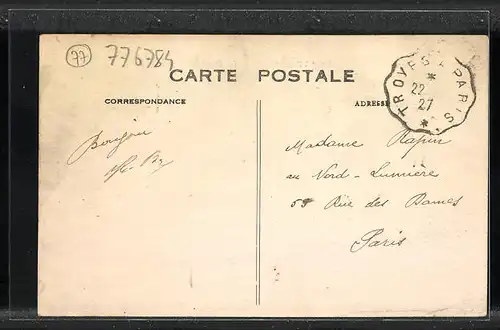 77
776784
CARTE POSTALE
CORRESPONDANCE
ADRESSE
TROYES A PARIS
22
27
Madame Rapin
au Nord-Lumière
58 Rue des Dames
Paris